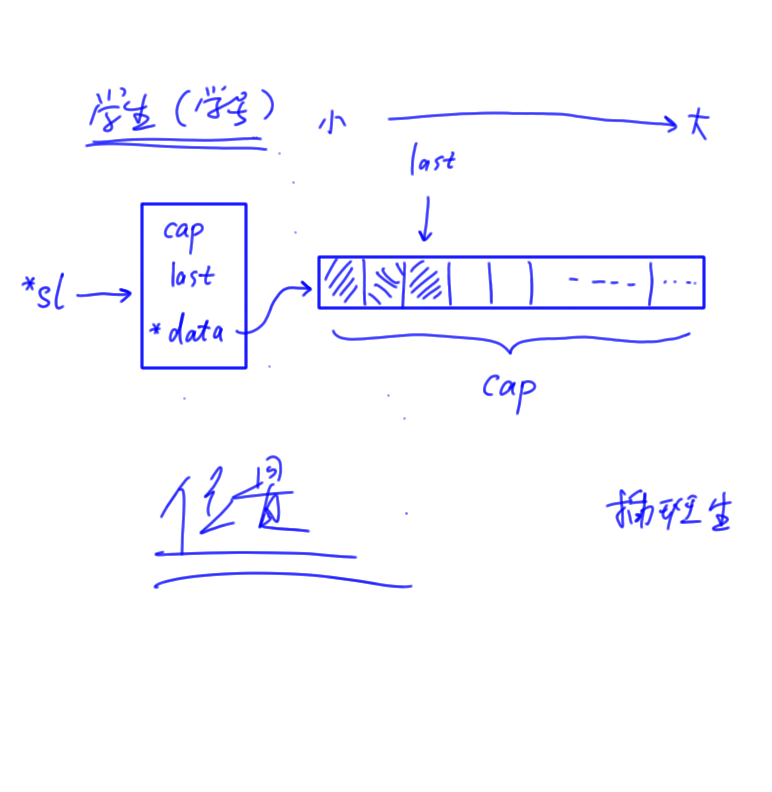 学生（学号） 小 大
last
cap
last
*sl
*data
cap
位置
插班生